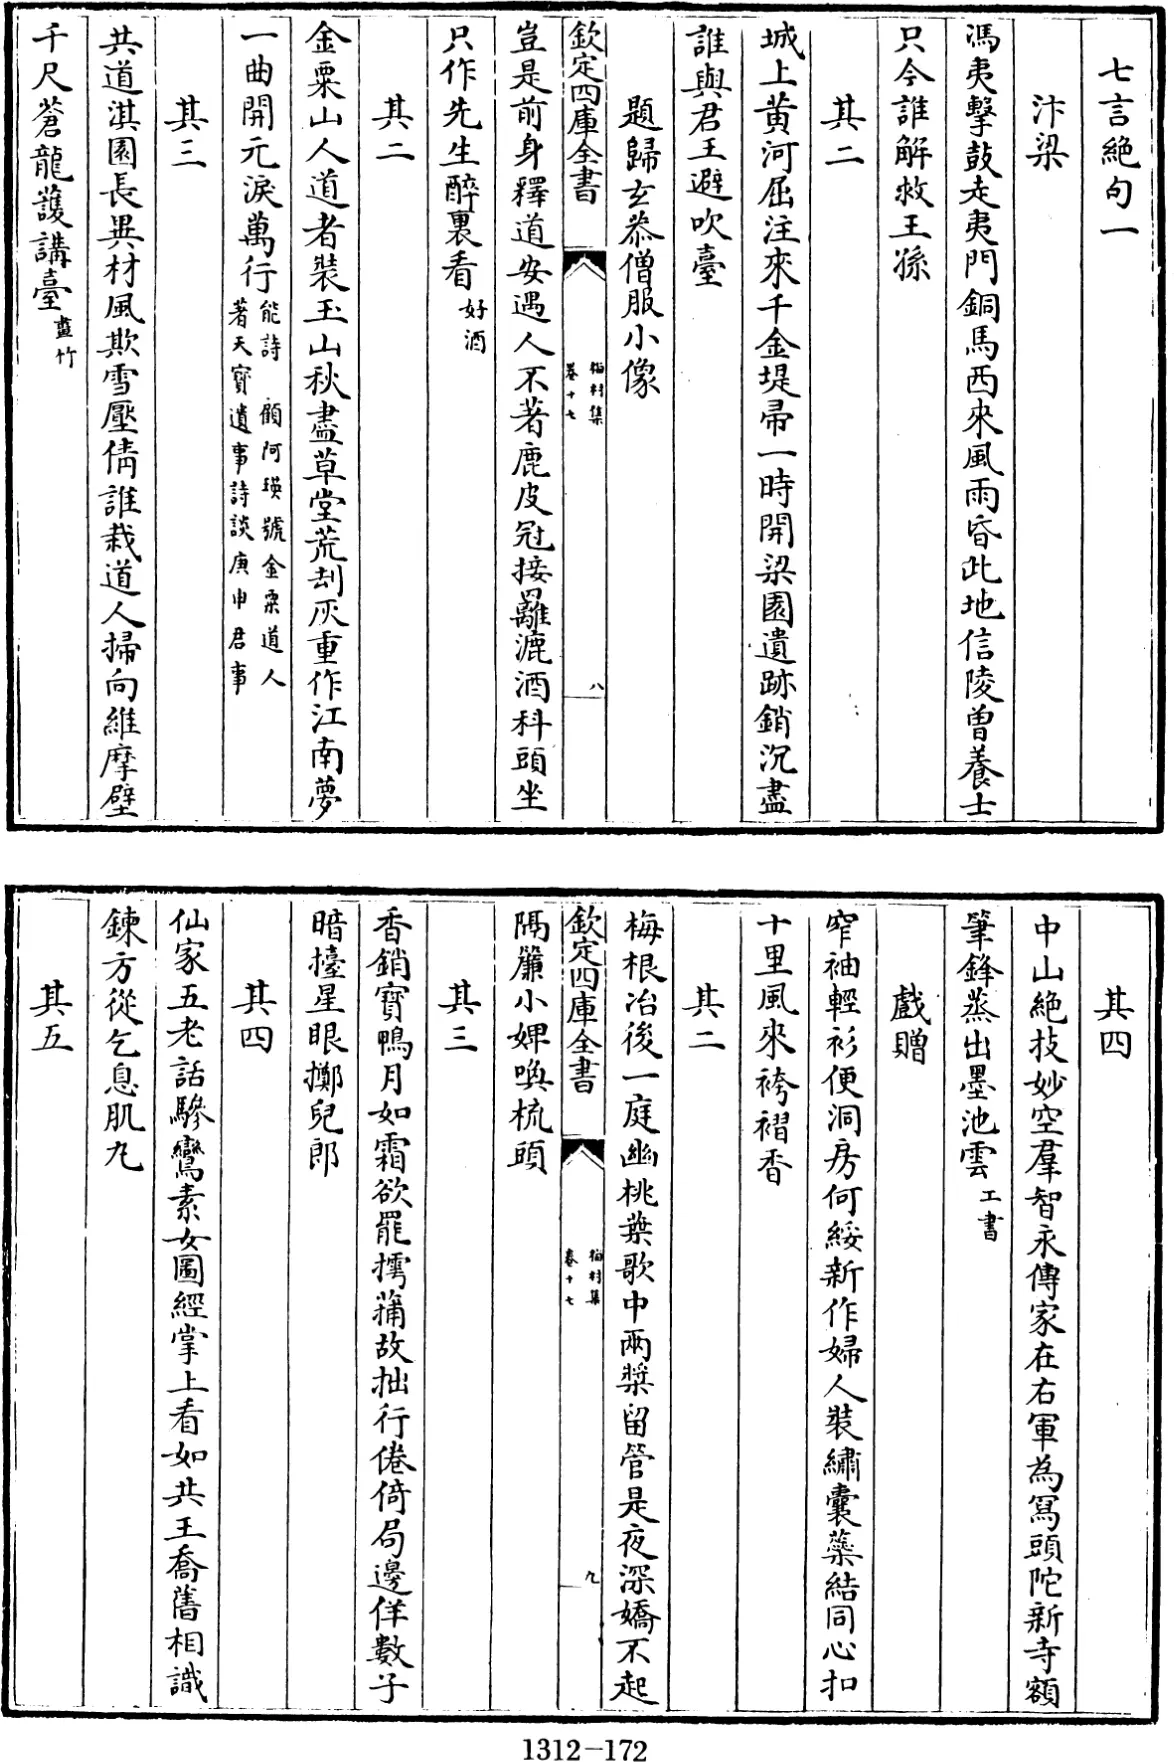 七言絶句一
汴梁
馮夷擊鼓走夷門銅馬西來風雨昏此地信陵曾養士
只今誰解救王孫
其二
城上黄河屈注來千金堤帚一時開梁園遺跡銷沉盡
誰與君王避吹臺
題歸玄恭僧服小像
豈是前身釋道安遇人不著鹿皮冠接䍦漉酒科頭坐
只作先生醉裏看好酒
其二
金粟山人道者裝玉山秋盡草堂荒刼灰重作江南夢
一曲開元淚萬行能詩 顧阿瑛號金粟道人
著天寳遺事詩談庚申君事
其三
共道淇園長異材風欺雪壓倩誰栽道人掃向維摩壁
千尺蒼龍護講臺畫竹
欽定四庫全書
梅村集
卷十七
八
其四
中山絶技妙空羣智永傳家在右軍為寫頭陀新寺額
筆鋒蒸出墨池雲工書
戲贈
窄袖輕衫便洞房何綏新作婦人裝繡囊藥結同心扣
十里風來袴褶香
其二
梅根冶後一庭幽桃葉歌中兩槳留管是夜深嬌不起
隔簾小婢喚梳頭
其三
香銷寳鴨月如霜欲罷摴蒱故拙行倦倚局邊佯數子
暗擡星眼擲兒郎
其四
仙家五老話驂鸞素女圖經掌上看如共王喬舊相識
鍊方從乞息肌丸
其五
欽定四庫全書
梅村集
卷十七
九
1312—172